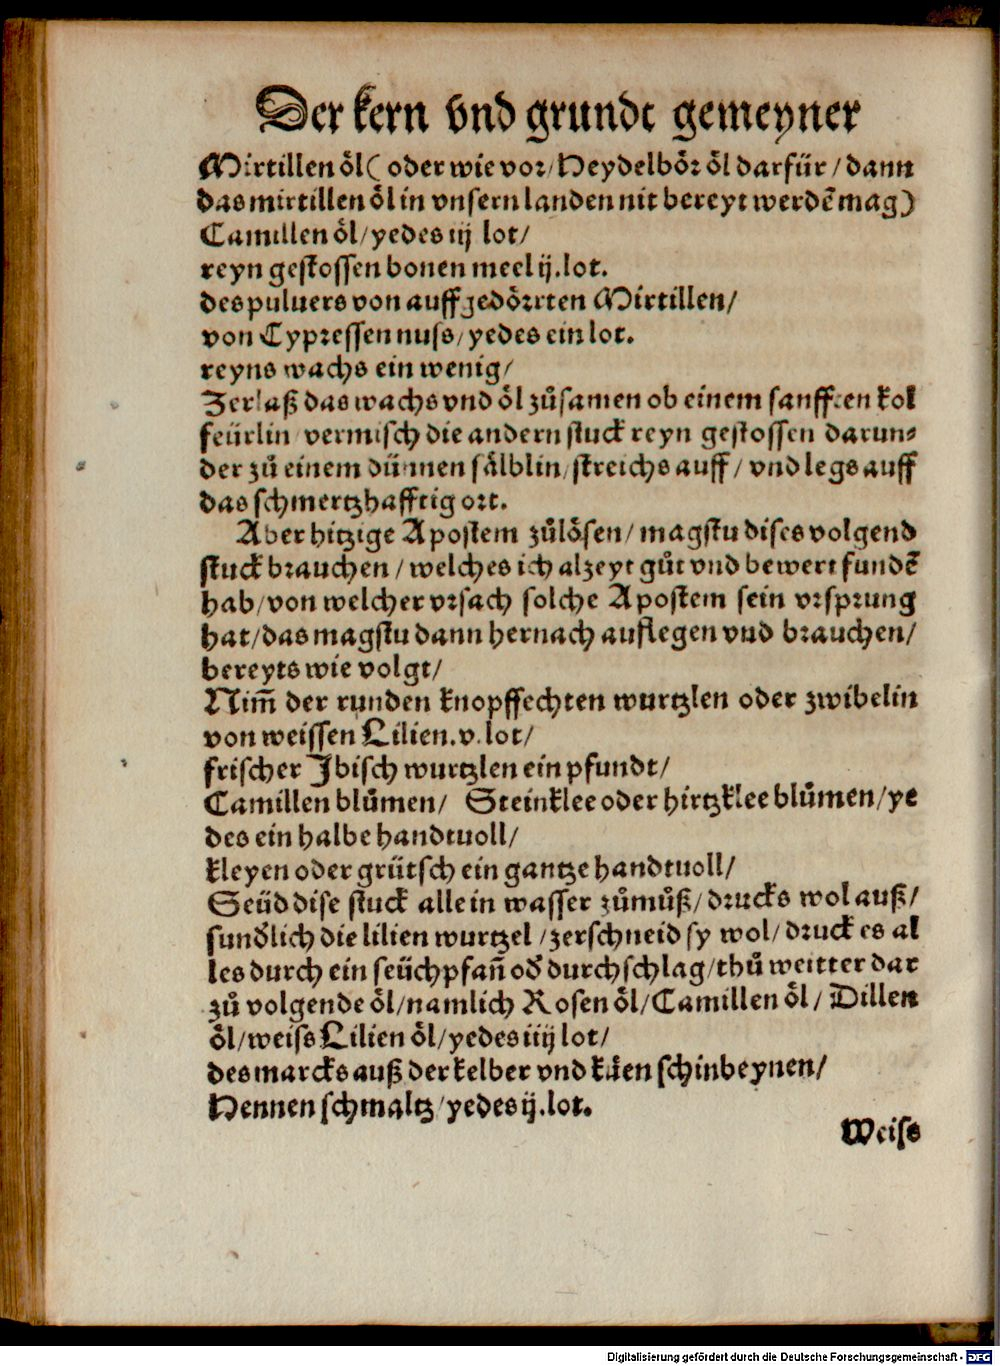 Der kern vnd grundt gemeyner
Mirtillen öl( oder wie vor/Heydelbör öl darfür / dann
das mirtillen öl in vnsern landen nit bereyt werdē mag)
Camillen öl/yedes iij lot/
reyn gestossen bonen meel ij.lot.
des puluers von auffgedörrten Mirtillen/
von Cypressen nuss/yedes ein lot.
reyns wachs ein wenig/
Zerlaß das wachs vnd öl zůsamen ob einem sanfften kol
feürlin/vermisch die andern stuck reyn gestossen darun⸗
der zů einem dünnen sälblin/streichs auff/ vnd legs auff
das schmertzhafftig ort.
Aber hitzige Apostem zůlösen/magstu dises volgend
stuck brauchen / welches ich alzeyt gůt vnd bewert fundē
hab/von welcher vrsach solche Apostem sein vrsprung
hat/das magstu dann hernach auflegen vnd brauchen/
bereyts wie volgt/
Nim̄ der runden knopffechten wurtzlen oder zwibelin
von weissen Lilien.v.lot/
frischer Ibisch wurtzlen ein pfundt/
Camillen blůmen/ Steinklee oder hirtzklee blůmen/ye
des ein halbe handtuoll/
kleyen oder grütsch ein gantze handtuoll/
Seüd dise stuck alle in wasser zůmůß/drucks wol auß/
sunđlich die lilien wurtzel /zerschneid sy wol/druck es al
les durch ein seüchpfañ ođ durchschlag/thů weitter dar
zů volgende öl/namlich Rosen öl/Camillen öl/ Dillen
öl/weiss Lilien öl/yedes iiij lot/
des marcks auß der kelber vnd kůen schinbeynen/
Hennen schmaltz/yedes ij.lot.
Weiss
Digitalisierung gefördert durch die Deutsche Forschungsgemeinschaft - DFG